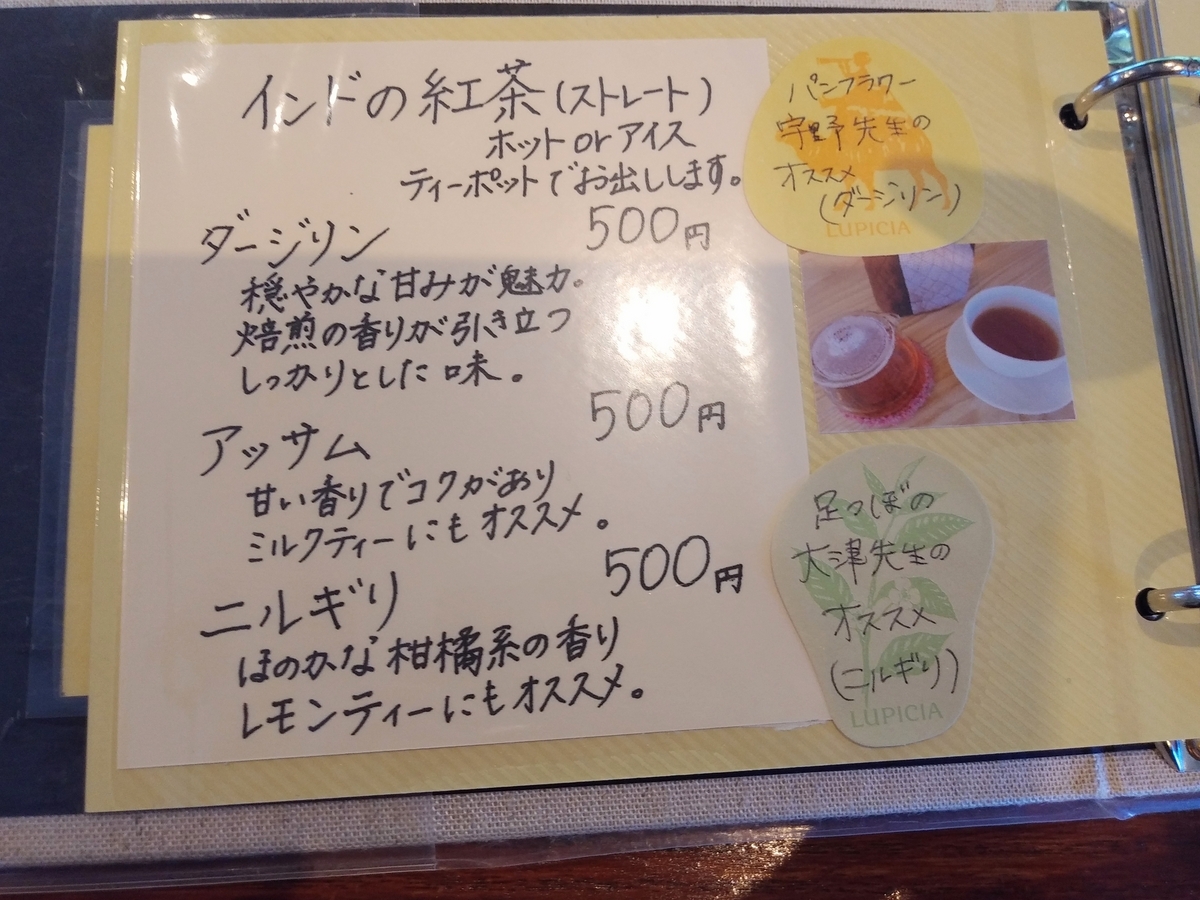 インドの紅茶(ストレート)
ホット or アイス
ティーポットでお出しします。
ダージリン 500円
穏やかな甘みが魅力。
焙煎の香りが引き立つ
しっかりとした味。
アッサム 500円
甘い香りでコクがあり
ミルクティーにもオススメ。
ニルギリ 500円
ほのかな柑橘系の香り
レモンティーにもオススメ。
パンフラワー
宇野先生の
オススメ
(ダージリン)
LUPICIA
足つぼの
大津先生の
オススメ
(ニルギリ)
LUPICIA